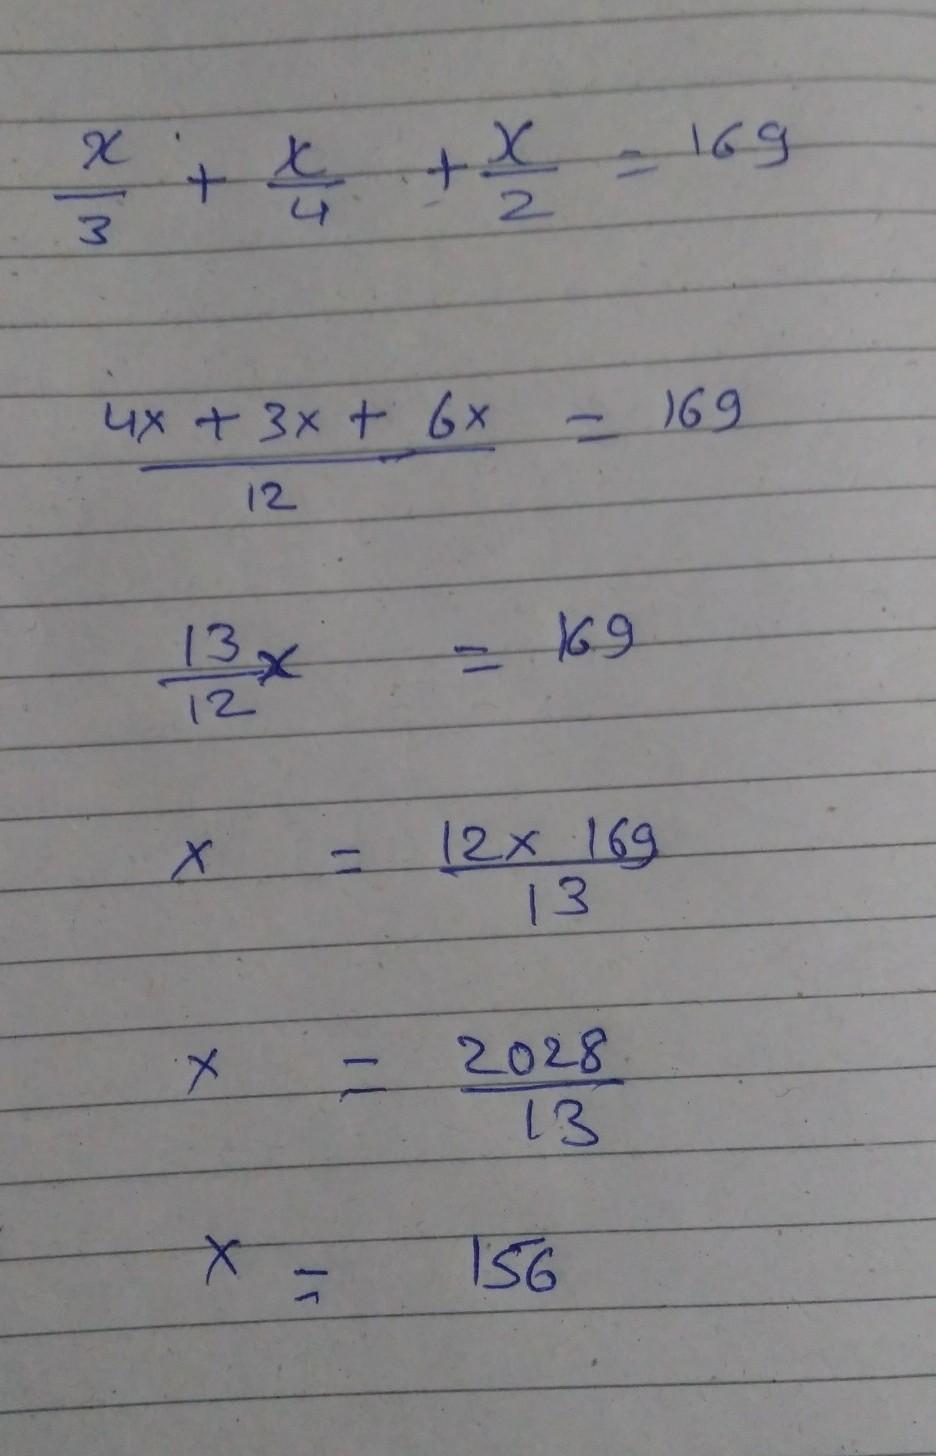 x/3 + x/4 + x/2 = 169
4x + 3x + 6x / 12 = 169
13/12 x = 169
x = 12 x 169 / 13
x = 2028 / 13
x = 156